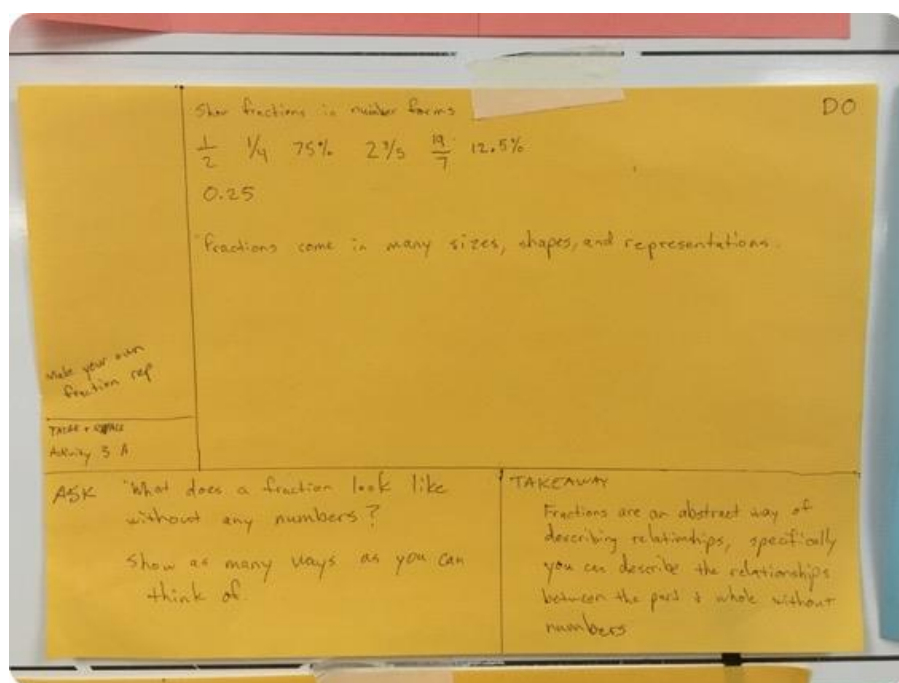 DO
Show fractions in number forms
1/2 1/4 75% 2 3/5 19/7 12.5%
0.25
"Fractions come in many sizes, shapes, and representations.
Make your own
fraction rep
Activity 3 A
ASK "What does a fraction look like
without any numbers?
Show as many ways as you can
think of.
TAKEAWAY
Fractions are an abstract way of
describing relationships, specifically
you can describe the relationships
between the part & whole without
numbers